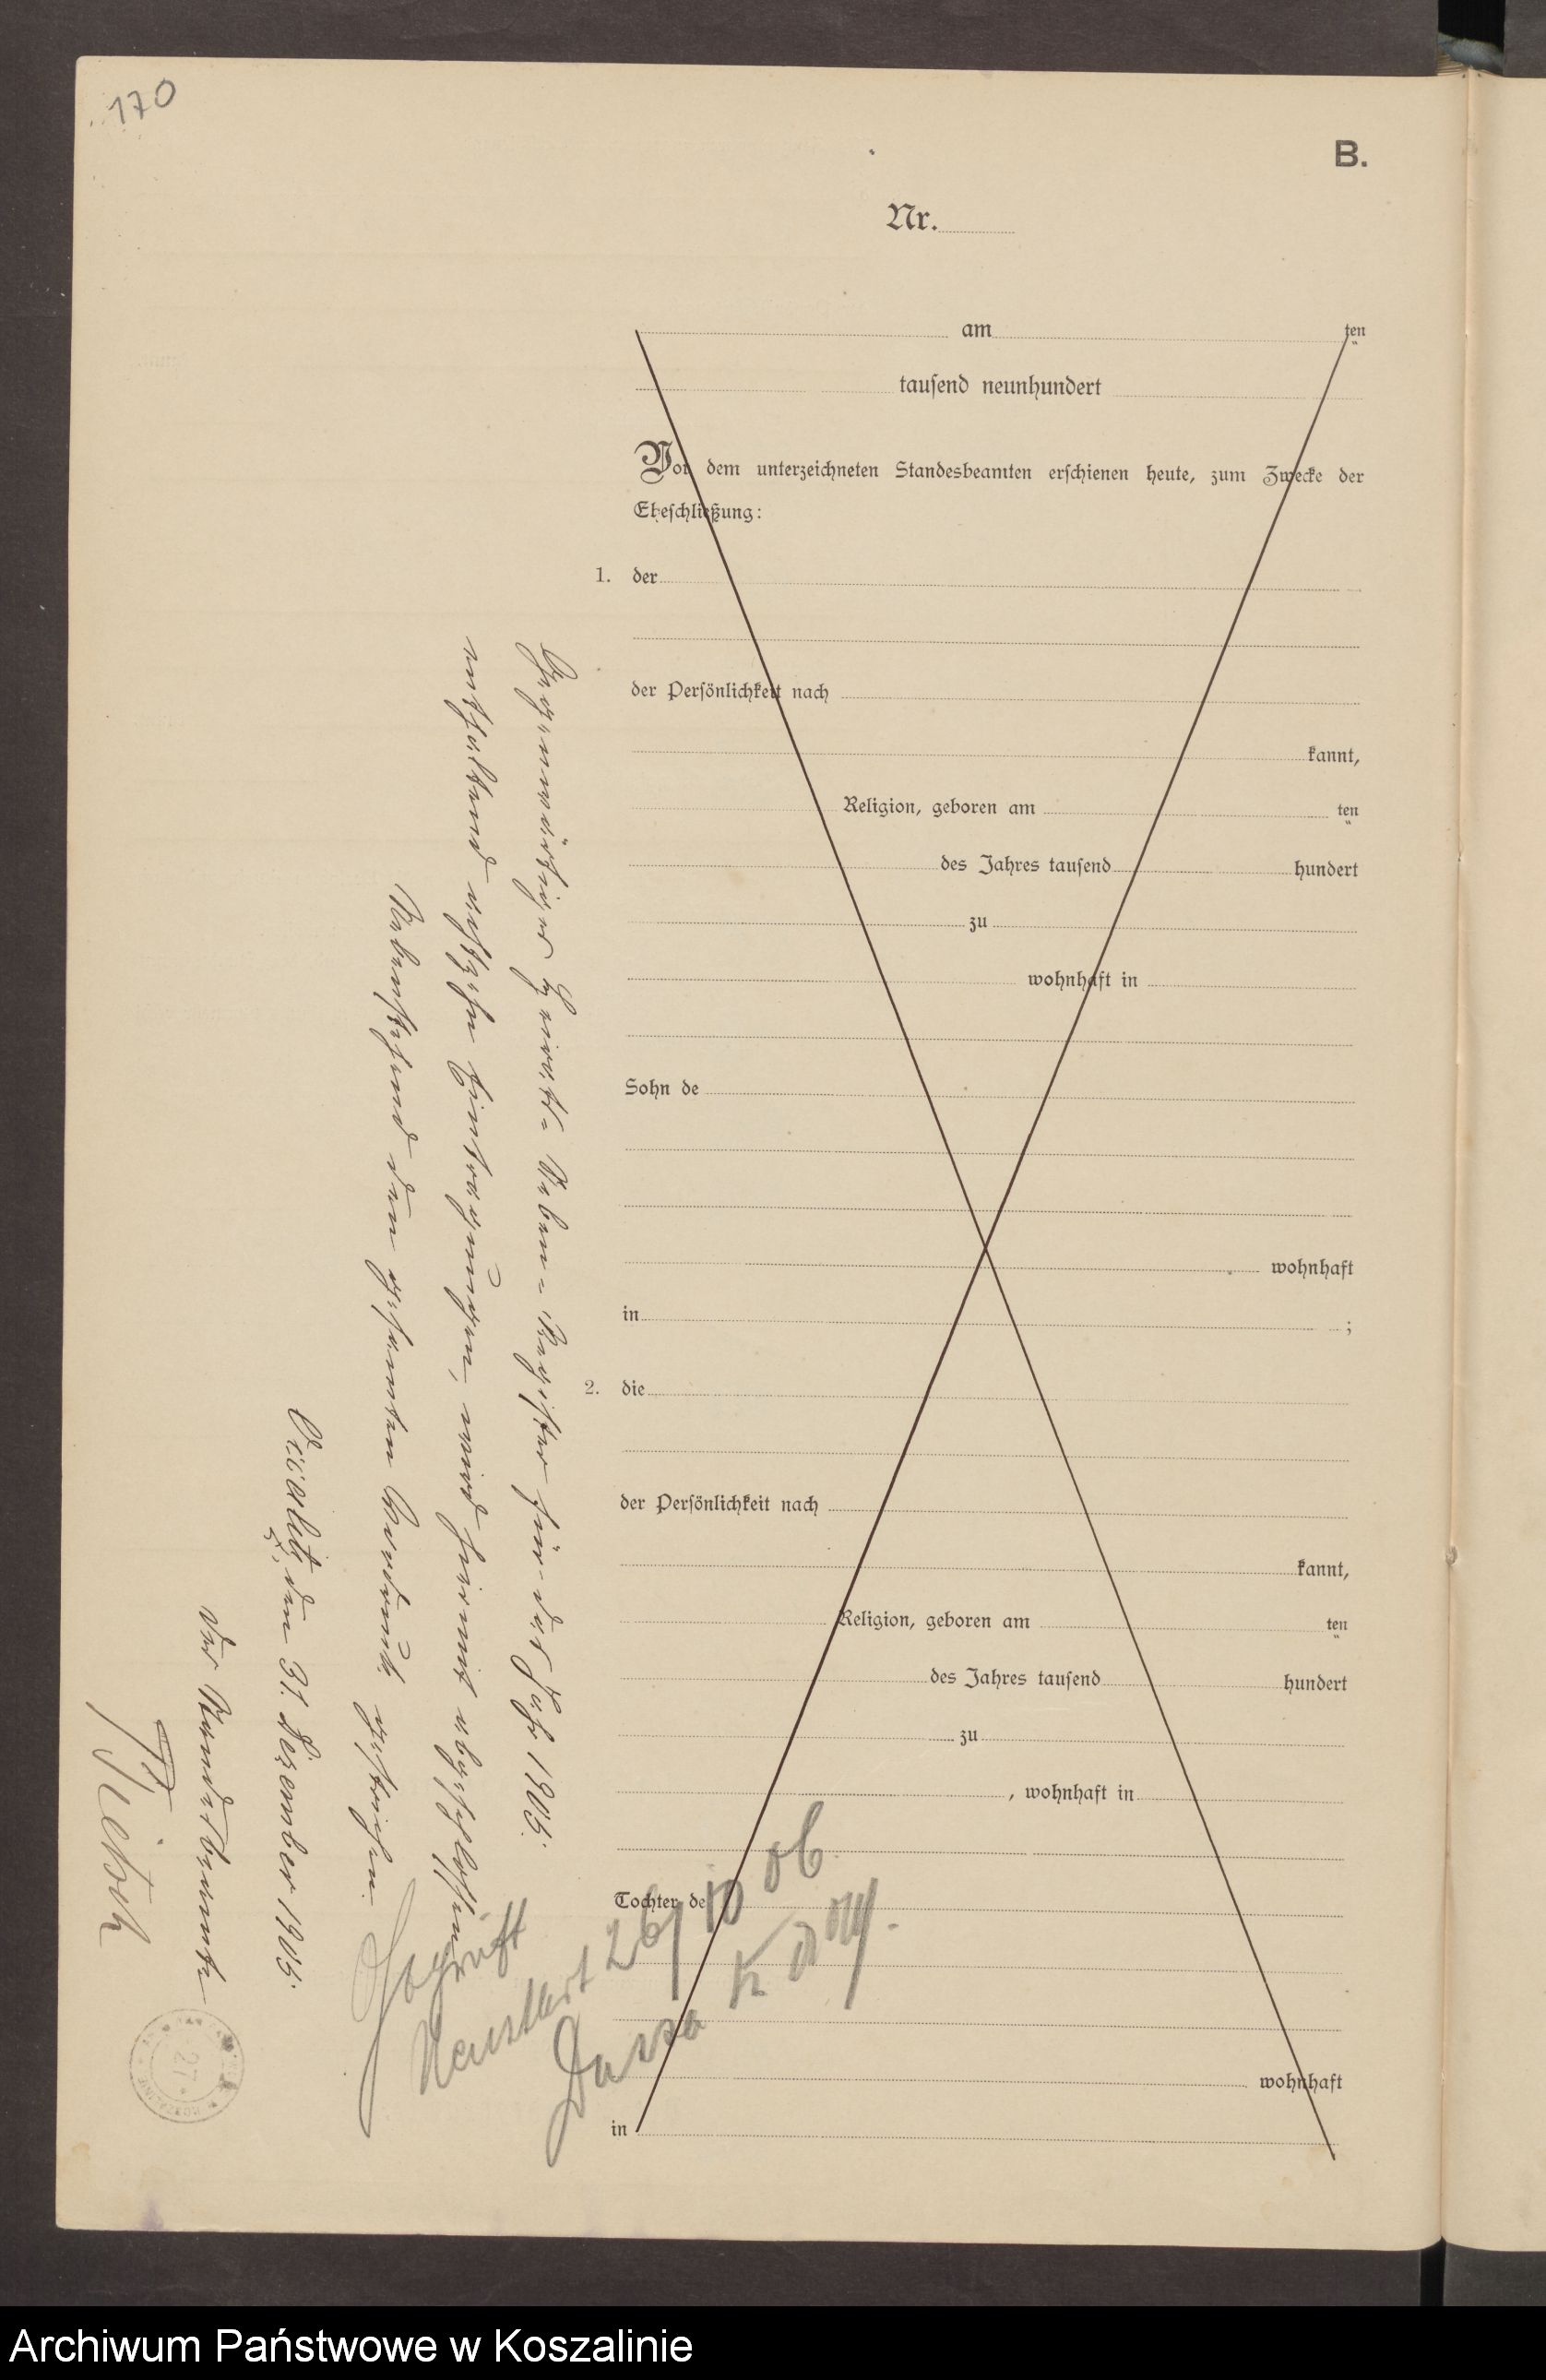 170
B.
Nr.
am ten
tausend neunhundert
Vor dem unterzeichneten Standesbeamten erschienen heute, zum Zwecke der
Eheschließung:
1. der
der Persönlichkeit nach
kannt,
Religion, geboren am ten
des Jahres tausend hundert
zu
wohnhaft in
Sohn de
wohnhaft
in ;
2. die
der Persönlichkeit nach
kannt,
Religion, geboren am ten
des Jahres tausend hundert
zu
, wohnhaft in
Tochter de
wohnhaft
in
Gegenwärtiges Heirats-Neben-Register für das Jahr 1905.
enthaltend achtzehn Eintragungen, wird hiermit abgeschlossen
Nebenstehend den gesamten Vordruck gestrichen.
den 31. Dezember 1905.
Der Standesbeamte
Geprüft
Neustett 26/10 06
Archiwum Państwowe w Koszalinie